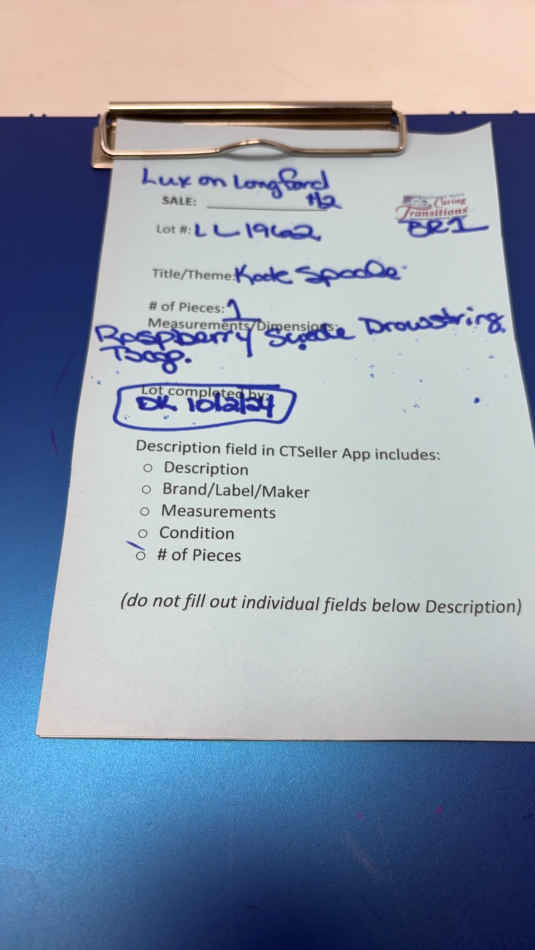 Lux on Longford
SALE: #2
Caring
Transitions
Lot #: LL1962 BR1
Title/Theme: Kade Spade
# of Pieces: 1
Measurements/Dimensions:
Raspberry Suede Drawstring
Bag.
Lot completed by:
DK 10/2/24
Description field in CTSeller App includes:
○ Description
○ Brand/Label/Maker
○ Measurements
○ Condition
○ # of Pieces
(do not fill out individual fields below Description)